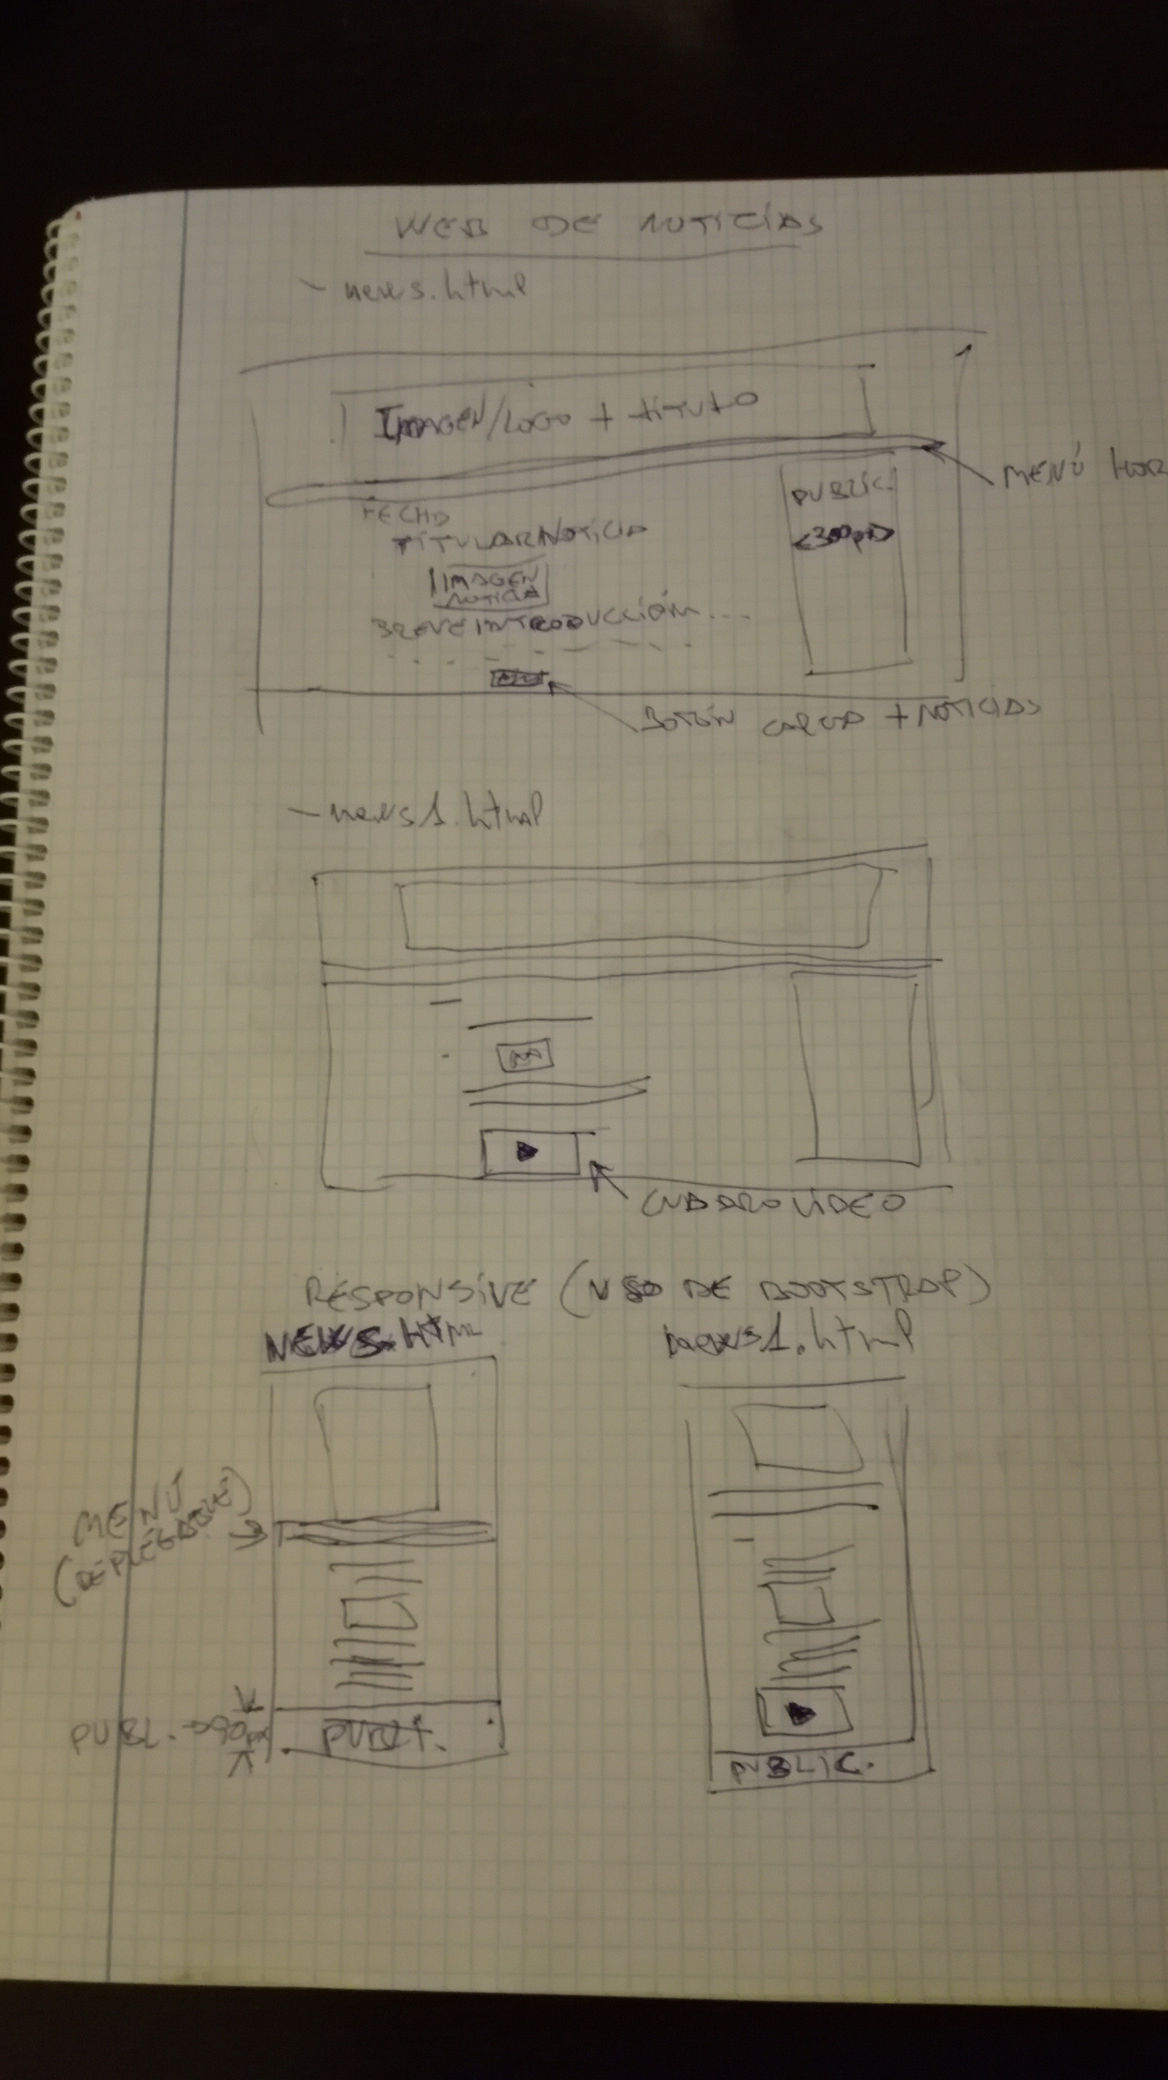 WEB DE NOTICIAS
- news.html
IMAGEN/LOGO + TÍTULO
MENÚ HOR
PUBLIC.
<300px>
FECHA
TÍTULAR NOTICIA
IMAGEN
NOTICIA
BREVE INTRODUCCIÓN...
BOTÓN CARGA + NOTICIAS
- news1.html
CUADRO VÍDEO
RESPONSIVE (USO DE BOOTSTRAP)
NEWS.HTML
news1.html
MENÚ
(DEPLEGABLE)
PUBL.
PUBLI.
PUBLIC.